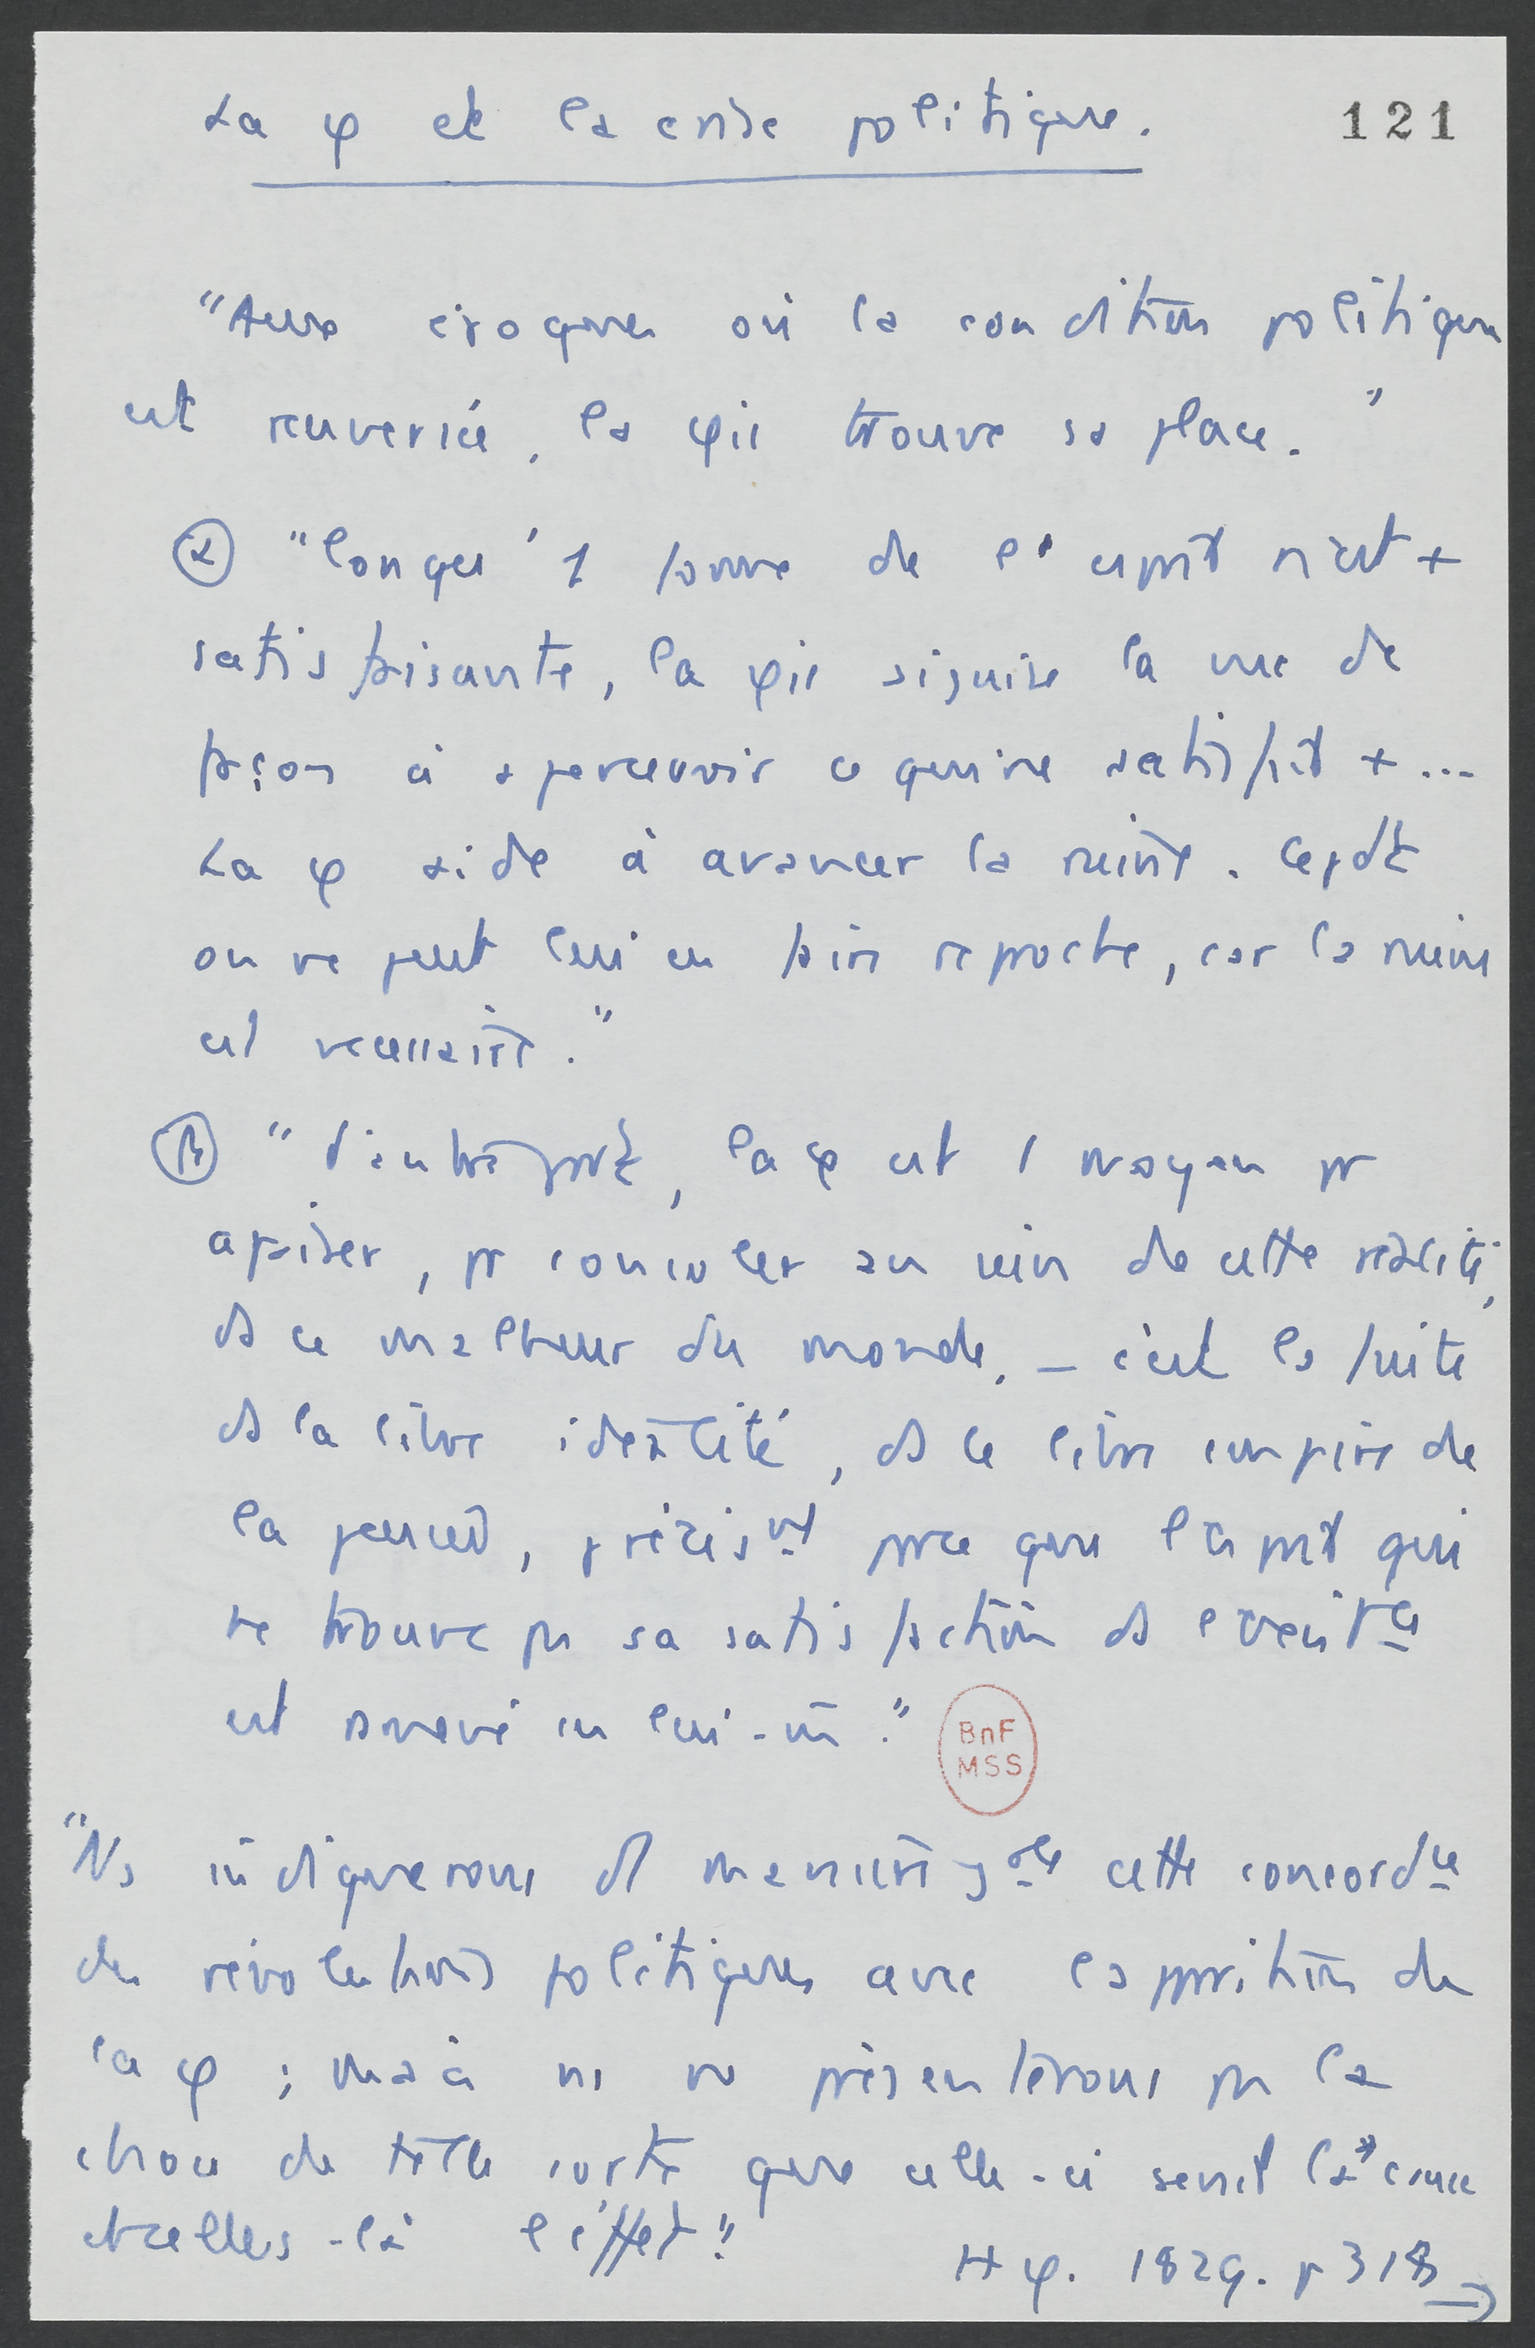 La φ et la crise politique.
121
"Aux époques où la condition politique
est renversée, la φie trouve sa place."
α "lorsqu'1 forme de l'esprit n'est +
satisfaisante, la φie aiguise la vue de
façon à apercevoir ce qui ne satisfait + ...
La φ aide à avancer la ruine. Cepdt
on ne peut lui en faire reproche, car la ruine
est nécessaire."
β "D'autre part, la φ est 1 moyen pr
apaiser, pr consoler au sein de cette réalité,
ds ce malheur du monde, – c'est la fuite
ds la libre idéalité, ds le libre empire de
la pensée, précismt parce que l'esprit qui
ne trouve pas sa satisfaction ds l'existce
est ramené en lui-m̄."
BnF
MSS
"Ns indiquerons d'1 manière gale cette concordce
des révolutions politiques avec l'apparition de
la φ ; mais ns ne présenterons pas la
chose de telle sorte que celle-ci serait la cause
et celles-là l'effet".
H φ. 1829. p 318 →